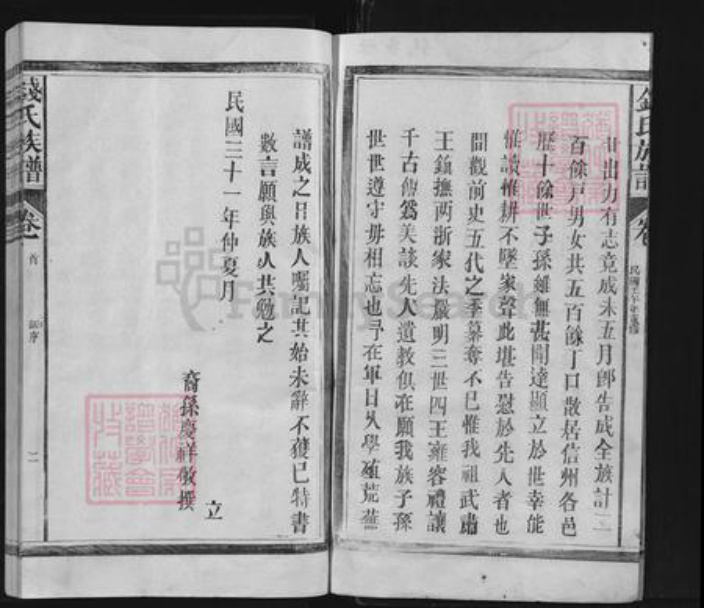 錢氏族譜 卷
民國壬午年重修
出力有志竟成未五月即告成全族計二
百餘戶男女共五百餘丁口散居信州各邑
歷十餘世子孫雖無甚聞達顯立於世幸能
惟讀惟耕不墜家聲此堪告慰於先人者也
間觀前史五代之季篡奪不已惟我祖武肅
王鎮撫两浙家法嚴明三世四王雍容禮讓
千古傳爲美談先人遺教俱在願我族子孫
世世遵守毋相忘也予在軍日久學殖荒蕪
譜成之日族人囑記其始末辭不獲已特書
數言願與族人共勉之
民國三十一年仲夏月
裔孫慶祥敬撰
立
錢氏族譜 卷
首 序 二
FamilySearch
譜學會
收藏